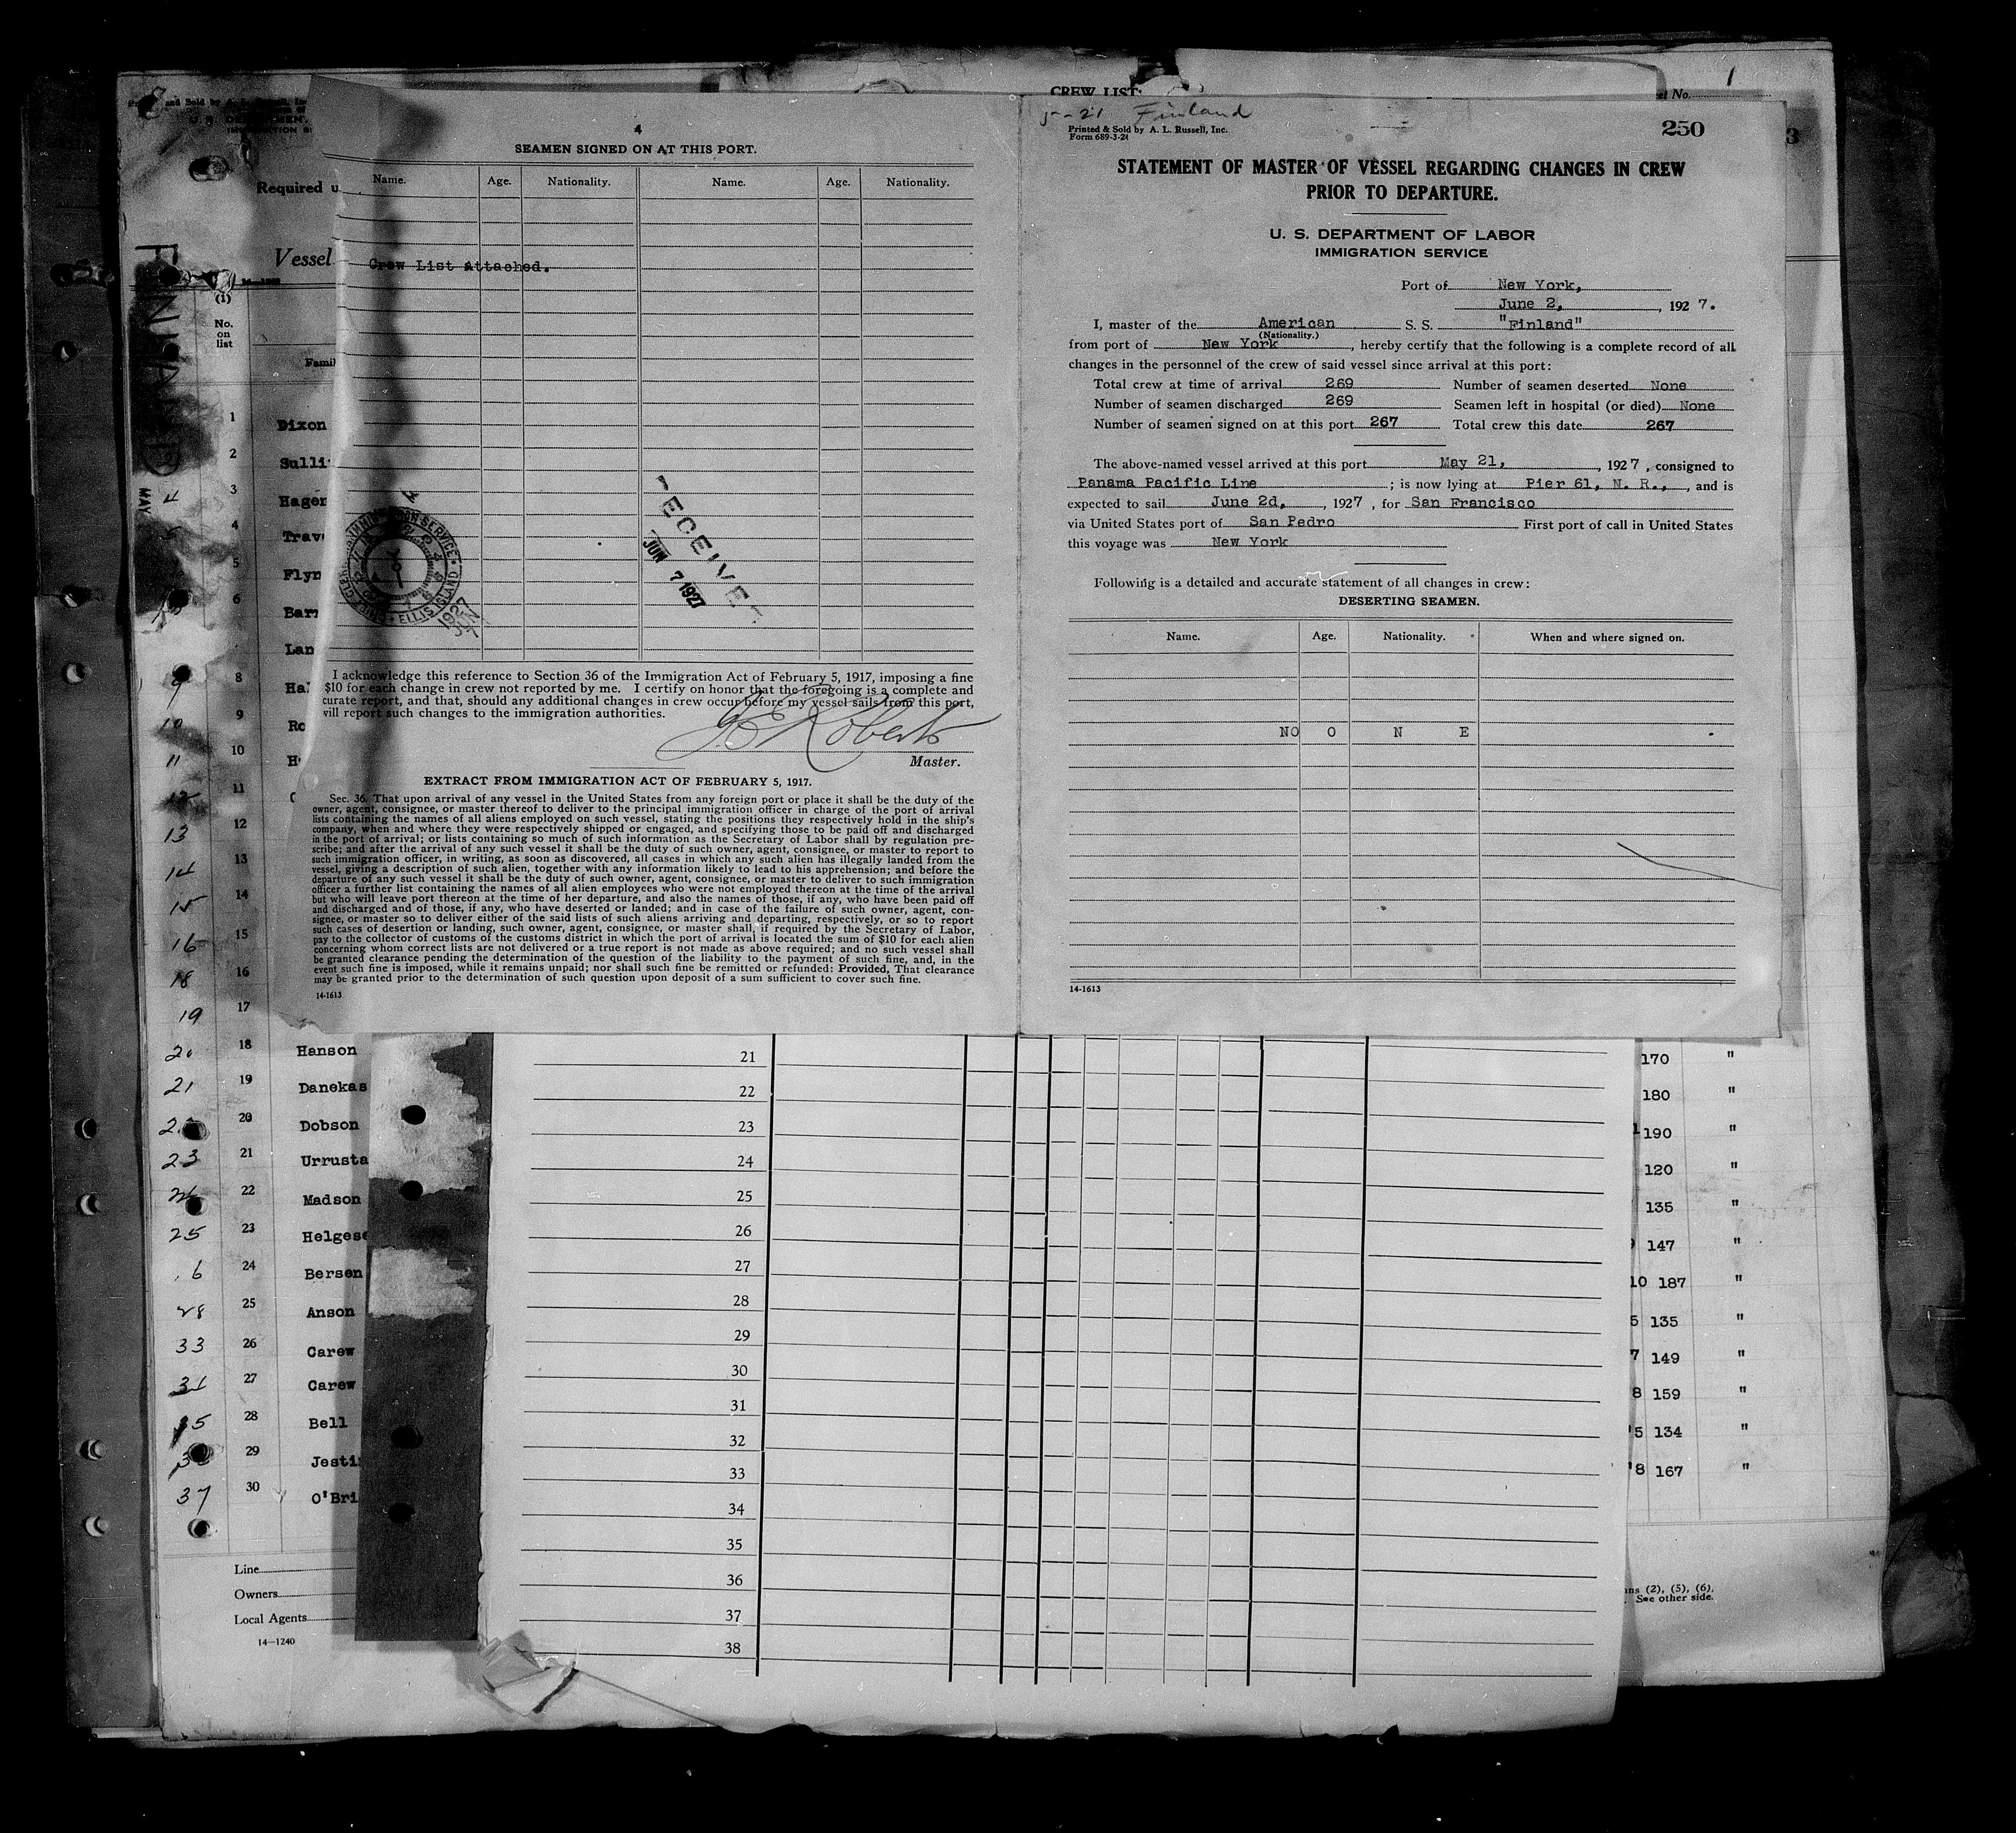 4
SEAMEN SIGNED ON AT THIS PORT.
Name. Age. Nationality. Name. Age. Nationality.
Crew List Attached.
RECEIVE
JUN 7 1927
I acknowledge this reference to Section 36 of the Immigration Act of February 5, 1917, imposing a fine
$10 for each change in crew not reported by me. I certify on honor that the foregoing is a complete and
curate report, and that, should any additional changes in crew occur before my vessel sails from this port,
vill report such changes to the immigration authorities.
Roberts
Master.
EXTRACT FROM IMMIGRATION ACT OF FEBRUARY 5, 1917.
Sec. 36. That upon arrival of any vessel in the United States from any foreign port or place it shall be the duty of the
owner, agent, consignee, or master thereof to deliver to the principal immigration officer in charge of the port of arrival
lists containing the names of all aliens employed on such vessel, stating the positions they respectively hold in the ship's
company, when and where they were respectively shipped or engaged, and specifying those to be paid off and discharged
in the port of arrival; or lists containing so much of such information as the Secretary of Labor shall by regulation pre-
scribe; and after the arrival of any such vessel it shall be the duty of such owner, agent, consignee, or master to report to
such immigration officer, in writing, as soon as discovered, all cases in which any such alien has illegally landed from the
vessel, giving a description of such alien, together with any information likely to lead to his apprehension; and before the
departure of any such vessel it shall be the duty of such owner, agent, consignee, or master to deliver to such immigration
officer a further list containing the names of all alien employees who were not employed thereon at the time of the arrival
but who will leave port thereon at the time of her departure, and also the names of those, if any, who have been paid off
and discharged and of those, if any, who have deserted or landed; and in case of the failure of such owner, agent, con-
signee, or master so to deliver either of the said lists of such aliens arriving and departing, respectively, or so to report
such cases of desertion or landing, such owner, agent, consignee, or master shall, if required by the Secretary of Labor,
pay to the collector of customs of the customs district in which the port of arrival is located the sum of $10 for each alien
concerning whom correct lists are not delivered or a true report is not made as above required; and no such vessel shall
be granted clearance pending the determination of the question of the liability to the payment of such fine, and, in the
event such fine is imposed, while it remains unpaid; nor shall such fine be remitted or refunded: Provided, That clearance
may be granted prior to the determination of such question upon deposit of a sum sufficient to cover such fine.
14-1613
CREW LIST:
1
5-21 Finland
Printed & Sold by A. L. Russell, Inc.
Form 689-3-24
250
STATEMENT OF MASTER OF VESSEL REGARDING CHANGES IN CREW
PRIOR TO DEPARTURE.
U. S. DEPARTMENT OF LABOR
IMMIGRATION SERVICE
Port of New York,
June 2, , 192 7.
I, master of the American S. S. "Finland"
(Nationality.)
from port of New York , hereby certify that the following is a complete record of all
changes in the personnel of the crew of said vessel since arrival at this port:
Total crew at time of arrival 269 Number of seamen deserted None
Number of seamen discharged 269 Seamen left in hospital (or died) None
Number of seamen signed on at this port 267 Total crew this date 267
The above-named vessel arrived at this port May 21, , 192 7 , consigned to
Panama Pacific Line ; is now lying at Pier 61, N. R., , and is
expected to sail June 2d, , 1927 , for San Francisco
via United States port of San Pedro First port of call in United States
this voyage was New York
Following is a detailed and accurate statement of all changes in crew:
DESERTING SEAMEN.
Name. Age. Nationality. When and where signed on.
NO O N E
14-1613
Required u
Vessel
(1)
No.
on
list
Famil
1 Dixon
2 Sulli
3 Hager
4 Trav
5 Flyn
6 Barr
Lan
8 Ha
9 Ro
10 H
11
13 12
14 13
15 14
16 15
18 16
19 17
20 18 Hanson
21 19 Danekas
20 Dobson
23 21 Urrusta
22 Madson
25 23 Helgese
24 Bersen
28 25 Anson
33 26 Carew
31 27 Carew
28 Bell
29 Jesti
37 30 O'Bri
Line
Owners
Local Agents
14—1240
21
22
23
24
25
26
27
28
29
30
31
32
33
34
35
36
37
38
170 "
180 "
190 "
120 "
135 "
147 "
10 187 "
5 135 "
7 149 "
8 159 "
5 134 "
8 167 "
ns (2), (5), (6).
See other side.